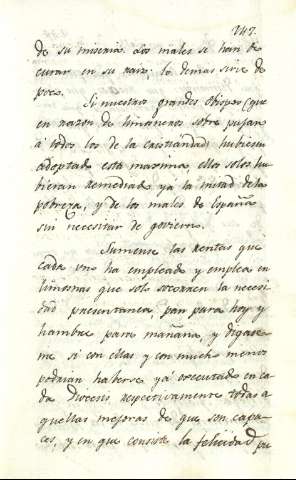 247.
de su miseria. Los males se han de
curar en su raiz: lo demas sirve de
poco.
Si nuestros grandes Obispos (que
en razon de limosneros sobre pujan
á todos los de la cristiandad) hubiesen
adoptado esta maxima, ellos solos hu-
bieran remediado ya la mitad de la
pobreza, y de los males de España
sin necesitar de govierno.
Sumense las rentas que
cada uno ha empleado y emplea en
limosnas que solo socorren la necesi
dad presentanea, pan para hoy y
hambre para mañana, y digase-
me si con ellas y con mucho menos
podrian haberse ya executado en ca
da Diocesis respectivamente todas a
quellas mejoras de que son capa-
ces, y en que consiste la felicidad pu